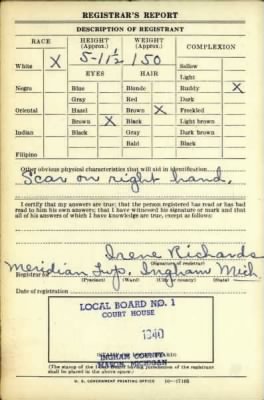 REGISTRAR'S REPORT
DESCRIPTION OF REGISTRANT
RACE HEIGHT (Approx.) WEIGHT (Approx.) COMPLEXION
White X 5-11½ 150 Sallow
EYES HAIR Light
Negro Blue Blonde Ruddy X
Gray Red Dark
Oriental Hazel Brown X Freckled
Brown X Black Light brown
Indian Black Gray Dark brown
Bald Black
Filipino
Other obvious physical characteristics that will aid in identification
Scar on right hand.
I certify that my answers are true; that the person registered has read or has had
read to him his own answers; that I have witnessed his signature or mark and that
all of his answers of which I have knowledge are true, except as follows:
Irene Richards
(Signature of registrar)
Registrar for Meridian Twp. Ingham Mich
Date of registration
LOCAL BOARD NO. 1
COURT HOUSE
1940
INGHAM COUNTY
MASON, MICHIGAN
(The stamp of the Local Board having jurisdiction of the registrant
shall be placed in the above space.)
U. S. GOVERNMENT PRINTING OFFICE 16—17105